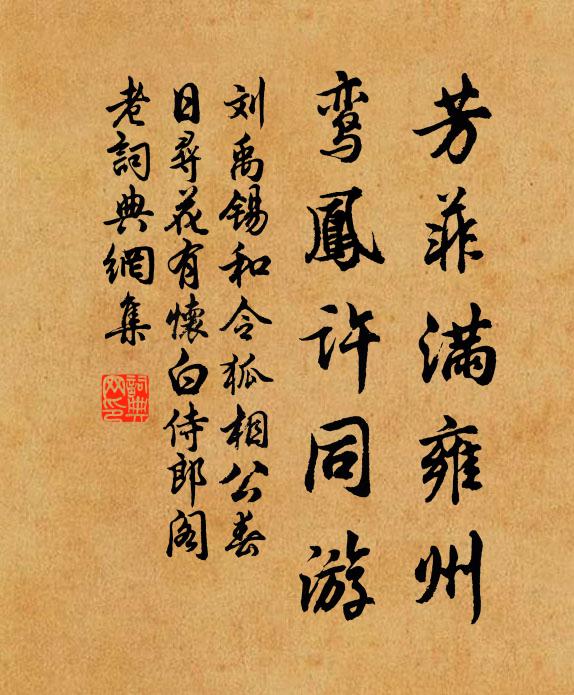 芳菲满雍州
鸾鳳许同游
刘禹锡和令狐相公春
日尋花有懷白侍郎阁
老詞典網集
詞典
网印